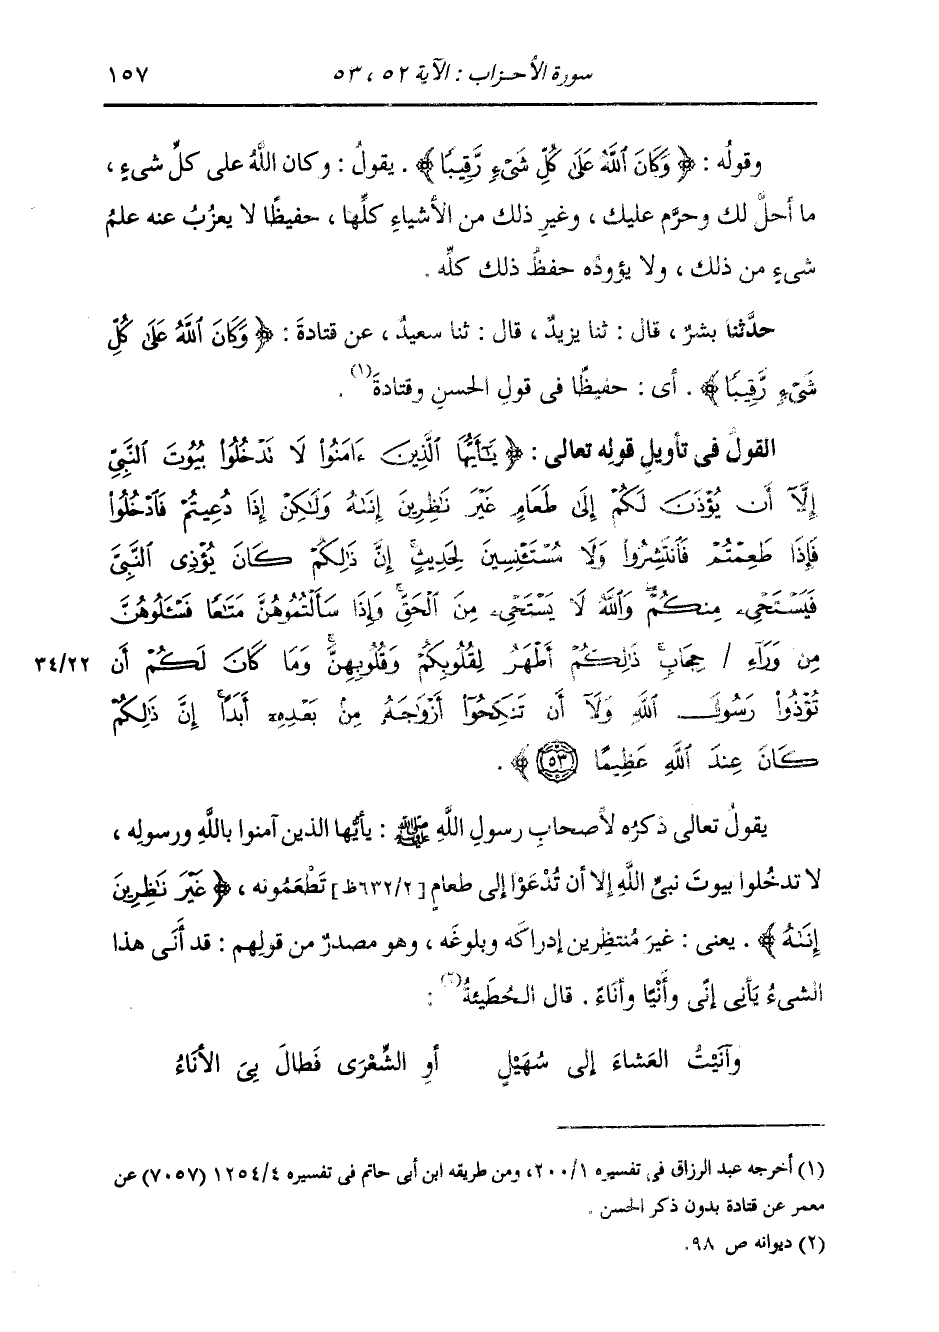 سورة الأحزاب : الآية ٥٢ ، ٥٣ ١٥٧
وقولُه : ﴿ وَكَانَ ٱللَّهُ عَلَىٰ كُلِّ شَىْءٍ رَّقِيبًا ﴾ . يقولُ : وكان اللَّهُ على كلِّ شىءٍ ،
ما أحلَّ لك وحرَّم عليك ، وغيرِ ذلك من الأشياءِ كلِّها ، حفيظًا لا يعزُبُ عنه علمُ
شىءٍ من ذلك ، ولا يؤودُه حفظُ ذلك كلِّه .
حدَّثنا بشرٌ ، قال : ثنا يزيدُ ، قال : ثنا سعيدٌ ، عن قتادةَ : ﴿ وَكَانَ ٱللَّهُ عَلَىٰ كُلِّ
شَىْءٍ رَّقِيبًا ﴾ . أى : حفيظًا فى قولِ الحسنِ وقتادةَ(١) .
القولُ فى تأويلِ قولِه تعالى : ﴿ يَٰٓأَيُّهَا ٱلَّذِينَ ءَامَنُوا۟ لَا تَدْخُلُوا۟ بُيُوتَ ٱلنَّبِىِّ
إِلَّآ أَن يُؤْذَنَ لَكُمْ إِلَىٰ طَعَامٍ غَيْرَ نَٰظِرِينَ إِنَىٰهُ وَلَٰكِنْ إِذَا دُعِيتُمْ فَٱدْخُلُوا۟
فَإِذَا طَعِمْتُمْ فَٱنتَشِرُوا۟ وَلَا مُسْتَـْٔنِسِينَ لِحَدِيثٍ ۚ إِنَّ ذَٰلِكُمْ كَانَ يُؤْذِى ٱلنَّبِىَّ
فَيَسْتَحْىِۦ مِنكُمْ ۖ وَٱللَّهُ لَا يَسْتَحْىِۦ مِنَ ٱلْحَقِّ ۚ وَإِذَا سَأَلْتُمُوهُنَّ مَتَٰعًا فَسْـَٔلُوهُنَّ
مِن وَرَآءِ / حِجَابٍ ۚ ذَٰلِكُمْ أَطْهَرُ لِقُلُوبِكُمْ وَقُلُوبِهِنَّ ۚ وَمَا كَانَ لَكُمْ أَن ٣٤/٢٢
تُؤْذُوا۟ رَسُولَ ٱللَّهِ وَلَآ أَن تَنكِحُوٓا۟ أَزْوَٰجَهُۥ مِنۢ بَعْدِهِۦٓ أَبَدًا ۚ إِنَّ ذَٰلِكُمْ
كَانَ عِندَ ٱللَّهِ عَظِيمًا ٥٣ ﴾ .
يقولُ تعالى ذكرُه لأصحابِ رسولِ اللَّهِ ﷺ : يأيُّها الذين آمنوا باللَّهِ ورسولِه ،
لا تدخُلوا بيوتَ نبىِّ اللَّهِ إلا أن تُدْعَوْا إلى طعامٍ [٦٣٢/٢ظ] تَطْعَمُونه ، ﴿ غَيْرَ نَٰظِرِينَ
إِنَىٰهُ ﴾ . يعنى : غيرَ مُنتظِرين إدراكَه وبلوغَه ، وهو مصدرٌ من قولِهم : قد أَنَى هذا
الشىءُ يَأْنِى إنًى وأَنْيًا وأَنَاءً . قال الحُطَيئةُ(٢) :
وآنَيْتُ العَشاءَ إلى سُهَيْلٍ أوِ الشِّعْرَى فَطالَ بِىَ الأَنَاءُ
(١) أخرجه عبد الرزاق فى تفسيره ٢٠٠/١، ومن طريقه ابن أبى حاتم فى تفسيره ١٢٥٤/٤ (٧٠٥٧) عن
معمر عن قتادة بدون ذكر الحسن .
(٢) ديوانه ص ٩٨.